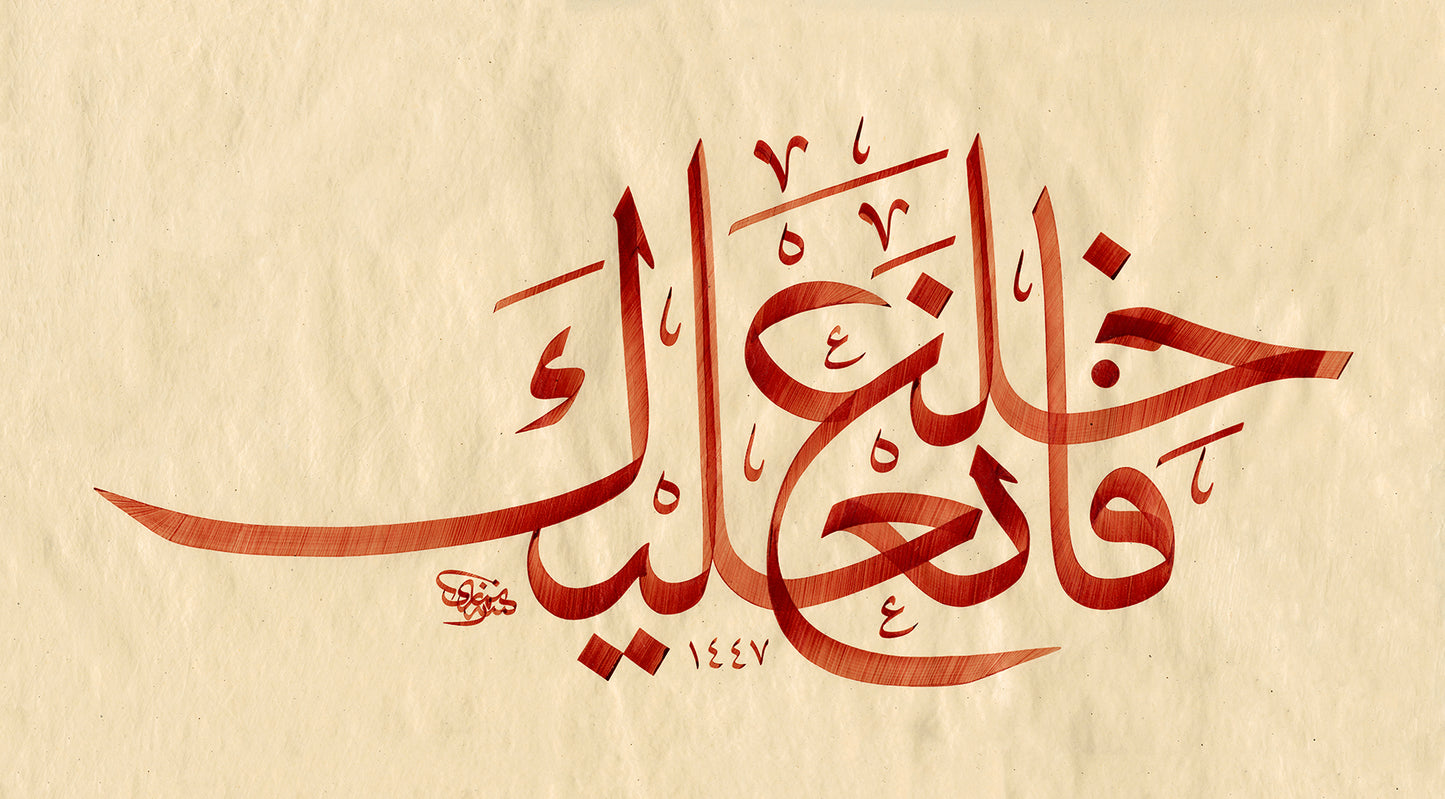 فَاخْلَعْ نَعْلَيْكَ
١٤٤٧